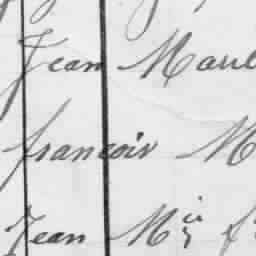 Jean Maul
francoir M
Jean M